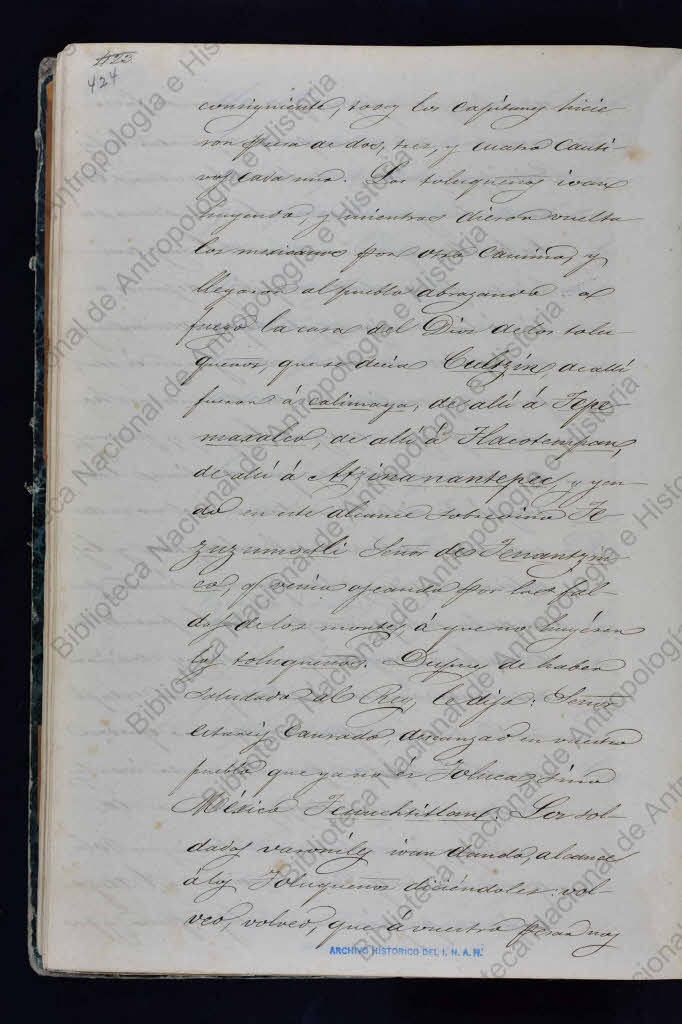 422.
424
consiguiente, todos los capitanes hicie
ron presa de dos, tres, y cuatro cauti
vos cada uno. Los toluqueños ivan
huyendo, y mientras dieron vuelta
los mexicanos por otro camino, y
llegaron al pueblo abrazando al
fuego la casa del Dios de los tolu-
queños, que se decia Cultzin, de alli
fueron á calimaya, de alli á Tepe
maxalco, de alli á Tlacotempan,
de alli á Atzinanantepec, y yen
do en este alcance sobrevino Te
zuzumoctli Señor de Tenantzin
co, q.e venia ojeando por las fal-
das de los montes, á que no huyésen
los toluqueños. Despues de haber
saludado al Rey, le dijo: Señor
estareis cansado, descanzad en vuestro
pueblo que ya no es Toluca, sino
México Tenuchtitlan. Los sol-
dados varoniles ivan dando alcance
á los Toluqueños diciéndoles: vol-
veo, volveo, que á vuestro pesar nos
ARCHIVO HISTORICO DEL I. N. A. H.
Biblioteca Nacional de Antropología e Historia